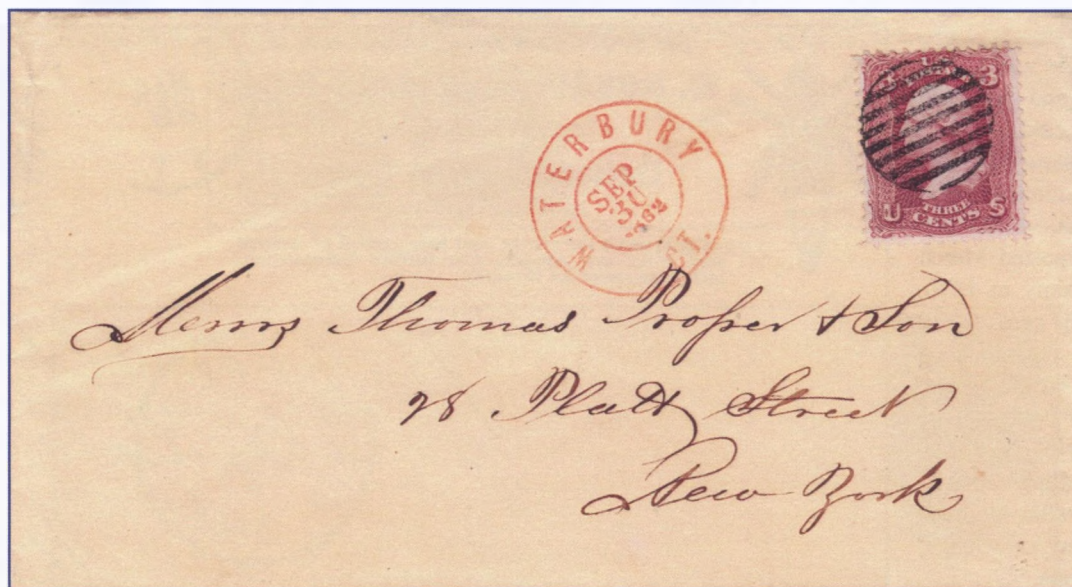 3 U.S. 3
WATERBURY CT.
SEP
30
1862
U THREE S
CENTS
Messrs Thomas Prosser & Son
28 Platt Street
New York